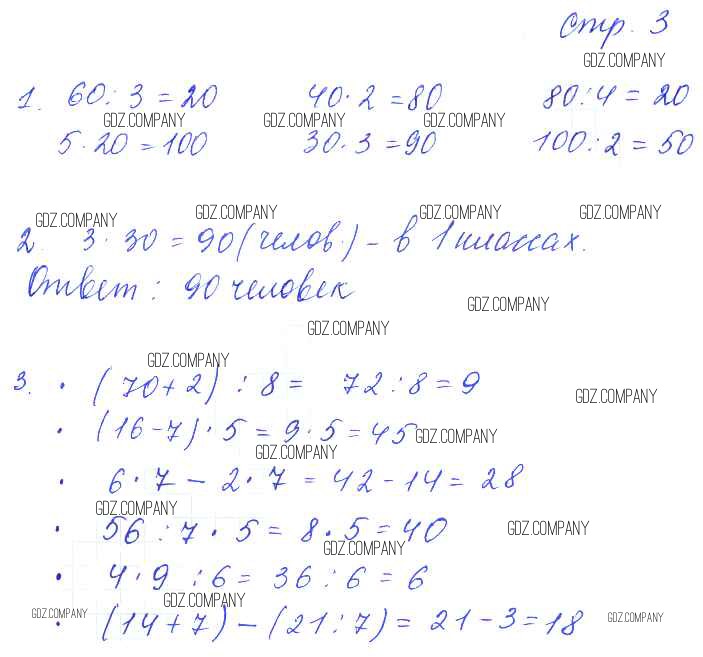 Стр. 3
GDZ.COMPANY
1. 60:3=20 40·2=80 80:4=20
GDZ.COMPANY GDZ.COMPANY GDZ.COMPANY
5·20=100 30·3=90 100:2=50
GDZ.COMPANY GDZ.COMPANY GDZ.COMPANY GDZ.COMPANY
2. 3·30=90(челов.)-в 1 классах.
Ответ: 90 человек
GDZ.COMPANY
GDZ.COMPANY
GDZ.COMPANY
3. · (70+2):8= 72:8=9
GDZ.COMPANY
· (16-7)·5=9·5=45
GDZ.COMPANY
GDZ.COMPANY
· 6·7-2·7=42-14=28
GDZ.COMPANY
· 56:7·5=8·5=40
GDZ.COMPANY
GDZ.COMPANY
· 4·9:6=36:6=6
GDZ.COMPANY
· (14+7)-(21:7)=21-3=18
GDZ.COMPANY GDZ.COMPANY